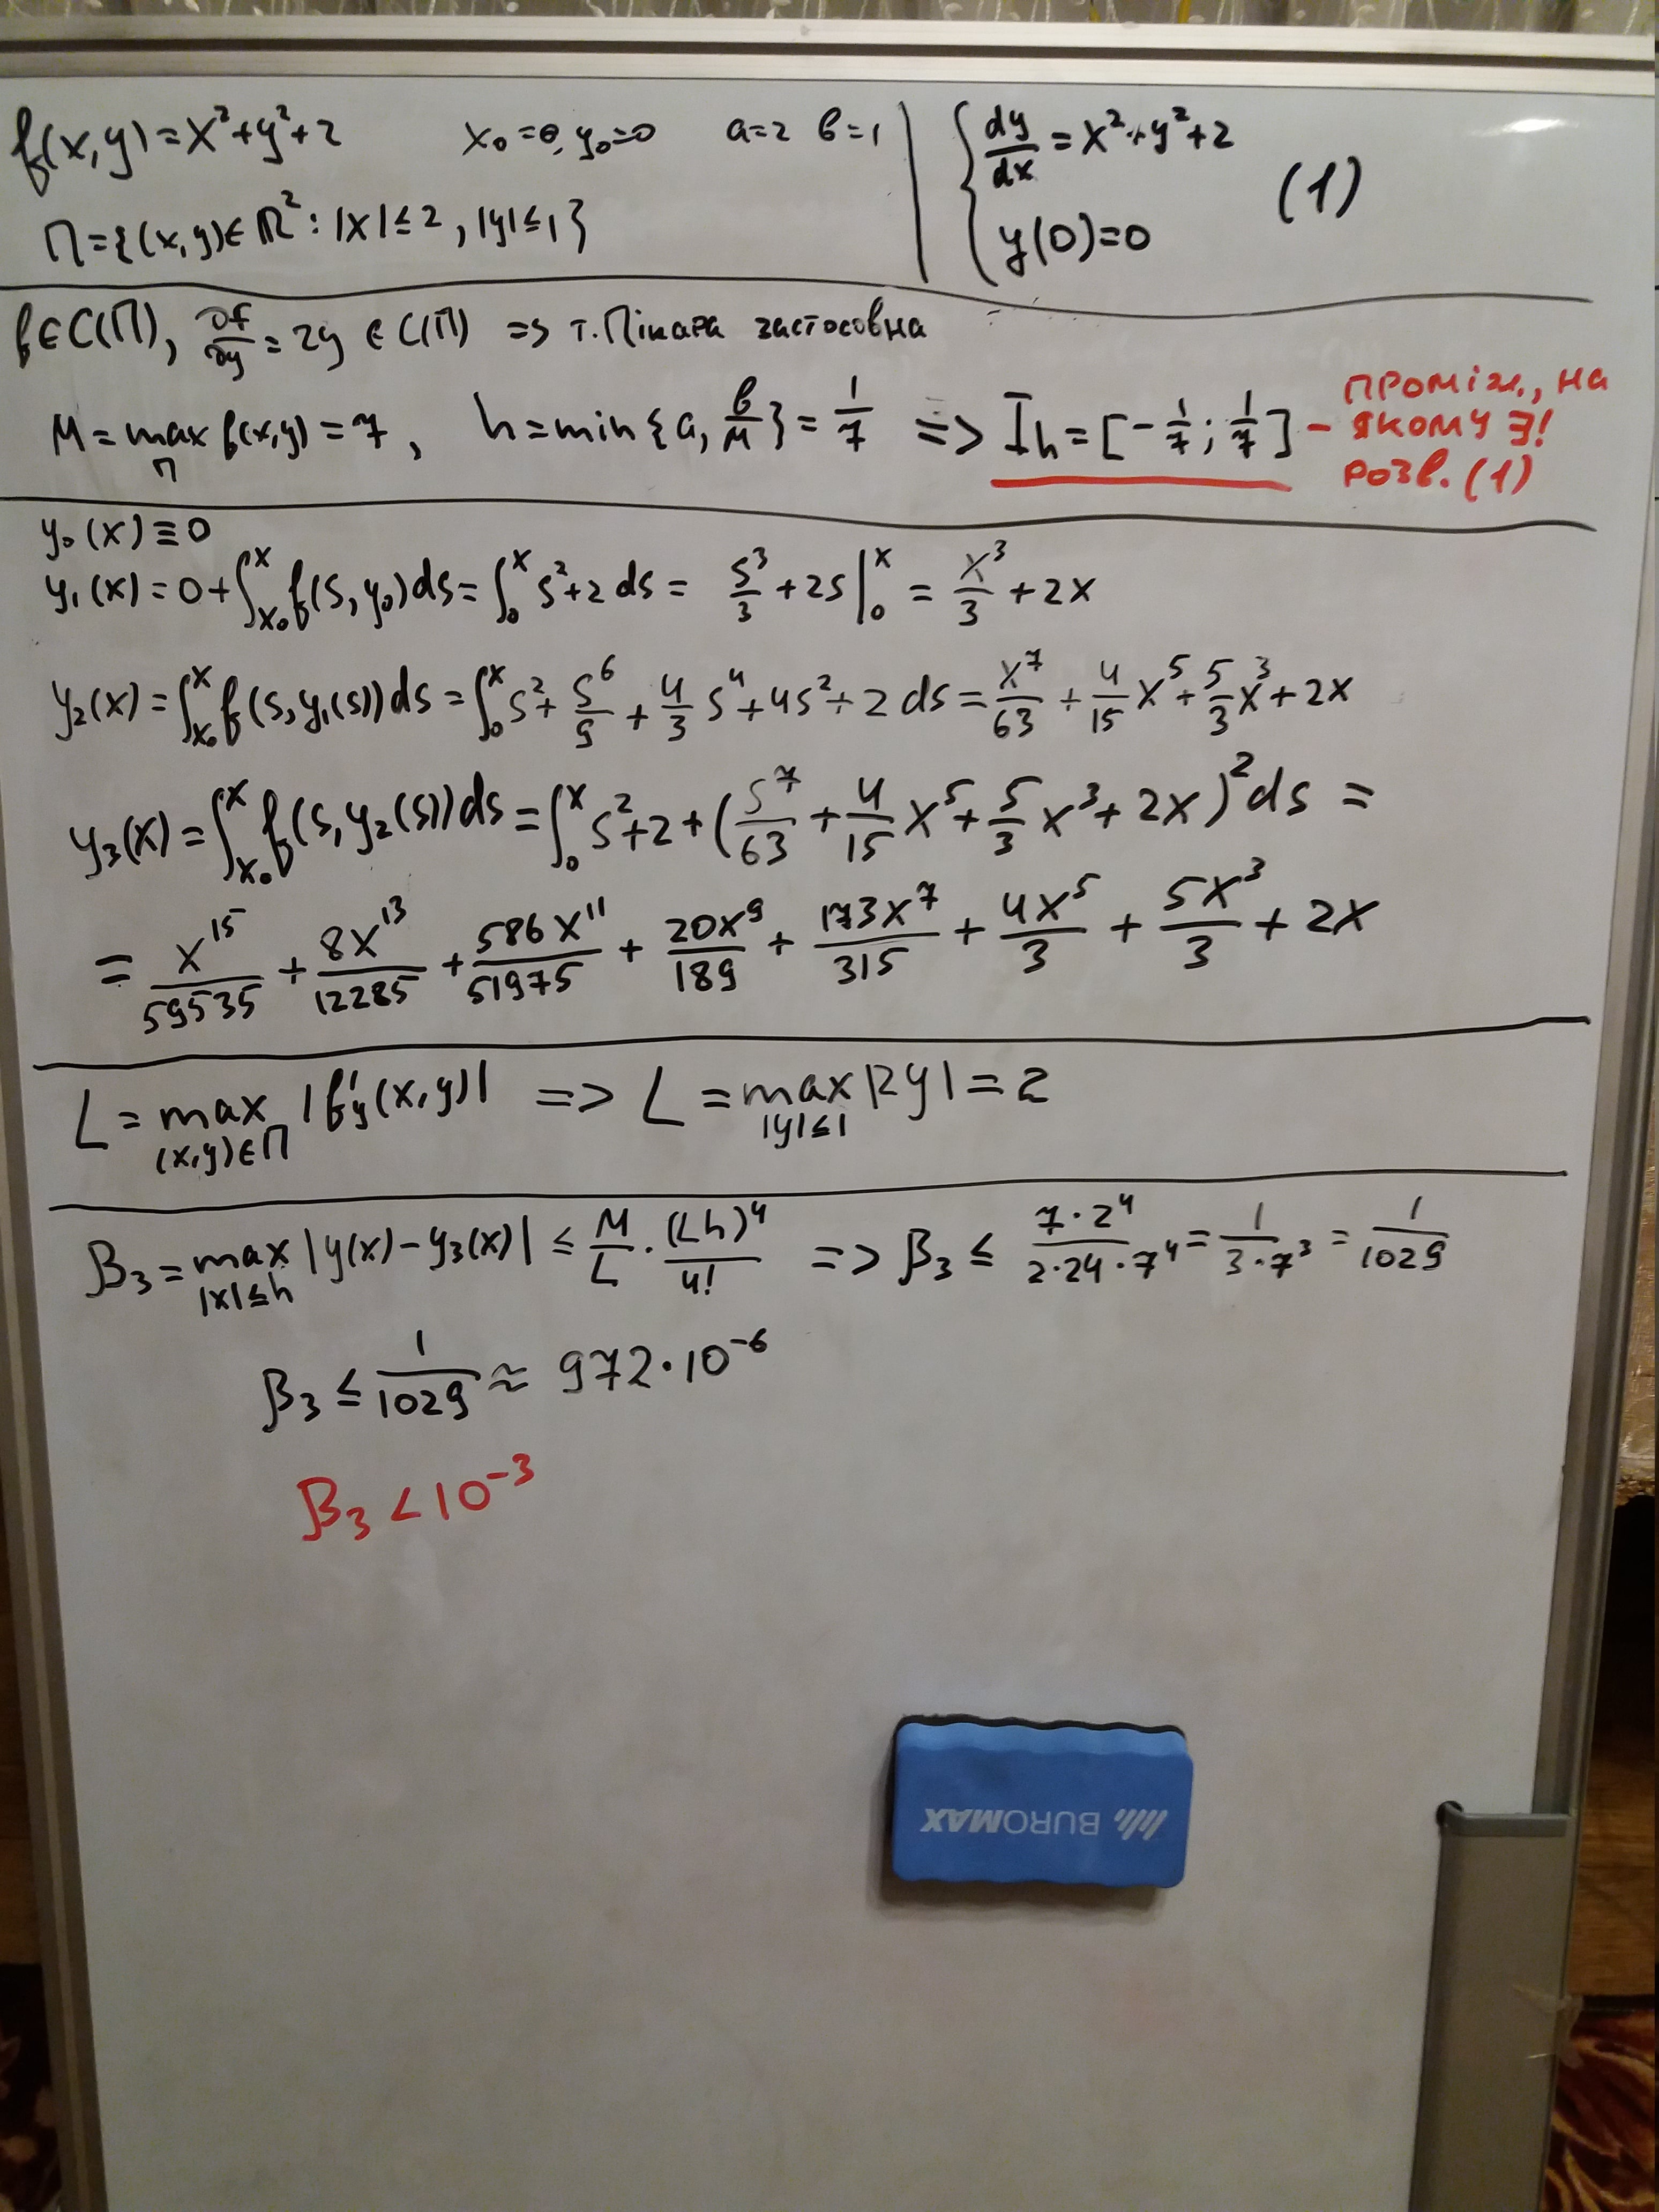 f(x,y)=x²+y²+2 x₀=0, y₀=0 a=2 b=1
П={(x,y)∈ℝ²: |x|≤2, |y|≤1}
{ dy/dx = x²+y²+2
y(0)=0 (1)
f∈C(П), ∂f/∂y = 2y ∈ C(П) => т. Пікара застосовна
M = max_П f(x,y) = 7, h = min{a, b/M} = 1/7 => I_h = [-1/7; 1/7] – проміж., на
якому ∃!
розв. (1)
y₀(x) ≡ 0
y₁(x) = 0+∫_{x₀}^{x} f(s,y₀)ds = ∫_0^x s²+2 ds = s³/3 + 2s |_0^x = x³/3 + 2x
y₂(x) = ∫_{x₀}^{x} f(s,y₁(s))ds = ∫_0^x s² + s⁶/9 + 4/3 s⁴ + 4s² + 2 ds = x⁷/63 + 4/15 x⁵ + 5/3 x³ + 2x
y₃(x) = ∫_{x₀}^{x} f(s,y₂(s))ds = ∫_0^x s²+2+(s⁷/63 + 4/15 x⁵ + 5/3 x³ + 2x)² ds =
= x¹⁵/59535 + 8x¹³/12285 + 586x¹¹/51975 + 20x⁹/189 + 173x⁷/315 + 4x⁵/3 + 5x³/3 + 2x
L = max_{(x,y)∈П} |f'_y(x,y)| => L = max_{|y|≤1} |2y| = 2
β₃ = max_{|x|≤h} |y(x)-y₃(x)| ≤ M/L · (Lh)⁴/4! => β₃ ≤ 7·2⁴/(2·24·7⁴) = 1/(3·7³) = 1/1029
β₃ ≤ 1/1029 ≈ 972·10⁻⁶
β₃ < 10⁻³
BUROMAX